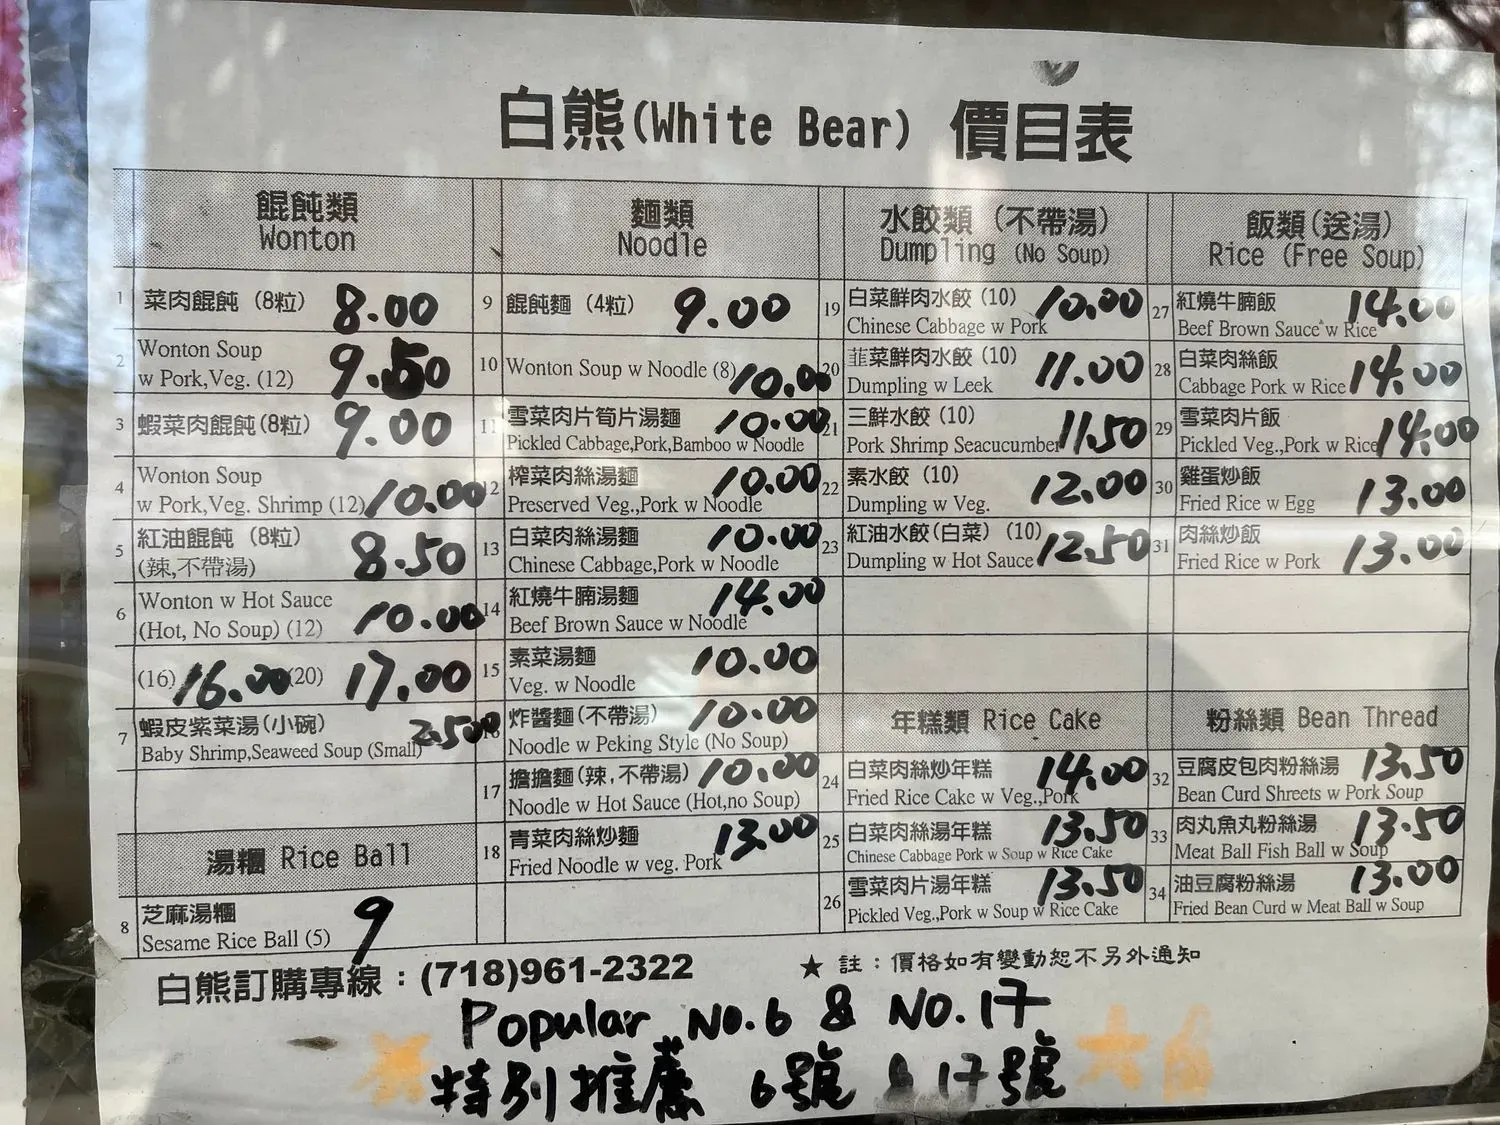 白熊(White Bear) 價目表
餛飩類
Wonton
1 菜肉餛飩 (8粒) 8.00
2 Wonton Soup
w Pork,Veg. (12) 9.50
3 蝦菜肉餛飩(8粒) 9.00
4 Wonton Soup
w Pork,Veg. Shrimp (12) 10.00
5 紅油餛飩 (8粒)
(辣,不帶湯) 8.50
6 Wonton w Hot Sauce
(Hot, No Soup) (12) 10.00
(16) 16.00 (20) 17.00
7 蝦皮紫菜湯(小碗)
Baby Shrimp,Seaweed Soup (Small)
湯糰 Rice Ball
8 芝麻湯糰
Sesame Rice Ball (5) 9
麵類
Noodle
9 餛飩麵 (4粒) 9.00
10 Wonton Soup w Noodle (8) 10.00
11 雪菜肉片筍片湯麵 10.00
Pickled Cabbage,Pork,Bamboo w Noodle
12 榨菜肉絲湯麵 10.00
Preserved Veg.,Pork w Noodle
13 白菜肉絲湯麵 10.00
Chinese Cabbage,Pork w Noodle
14 紅燒牛腩湯麵 14.00
Beef Brown Sauce w Noodle
15 素菜湯麵 10.00
Veg. w Noodle
16 炸醬麵(不帶湯) 10.00
Noodle w Peking Style (No Soup)
17 擔擔麵(辣,不帶湯) 10.00
Noodle w Hot Sauce (Hot,no Soup)
18 青菜肉絲炒麵 13.00
Fried Noodle w veg. Pork
水餃類 (不帶湯)
Dumpling (No Soup)
19 白菜鮮肉水餃 (10) 10.00
Chinese Cabbage w Pork
20 韮菜鮮肉水餃 (10) 11.00
Dumpling w Leek
21 三鮮水餃 (10) 11.50
Pork Shrimp Seacucumber
22 素水餃 (10) 12.00
Dumpling w Veg.
23 紅油水餃(白菜) (10) 12.50
Dumpling w Hot Sauce
年糕類 Rice Cake
24 白菜肉絲炒年糕 14.00
Fried Rice Cake w Veg.,Pork
25 白菜肉絲湯年糕 13.50
Chinese Cabbage Pork w Soup w Rice Cake
26 雪菜肉片湯年糕 13.50
Pickled Veg.,Pork w Soup w Rice Cake
飯類(送湯)
Rice (Free Soup)
27 紅燒牛腩飯 14.00
Beef Brown Sauce w Rice
28 白菜肉絲飯 14.00
Cabbage Pork w Rice
29 雪菜肉片飯 14.00
Pickled Veg.,Pork w Rice
30 雞蛋炒飯 13.00
Fried Rice w Egg
31 肉絲炒飯 13.00
Fried Rice w Pork
粉絲類 Bean Thread
32 豆腐皮包肉粉絲湯 13.50
Bean Curd Shreets w Pork Soup
33 肉丸魚丸粉絲湯 13.50
Meat Ball Fish Ball w Soup
34 油豆腐粉絲湯 13.00
Fried Bean Curd w Meat Ball w Soup
白熊訂購專線：(718)961-2322
★ 註：價格如有變動恕不另外通知
Popular No.6 & No.17
特別推薦 6號 & 17號